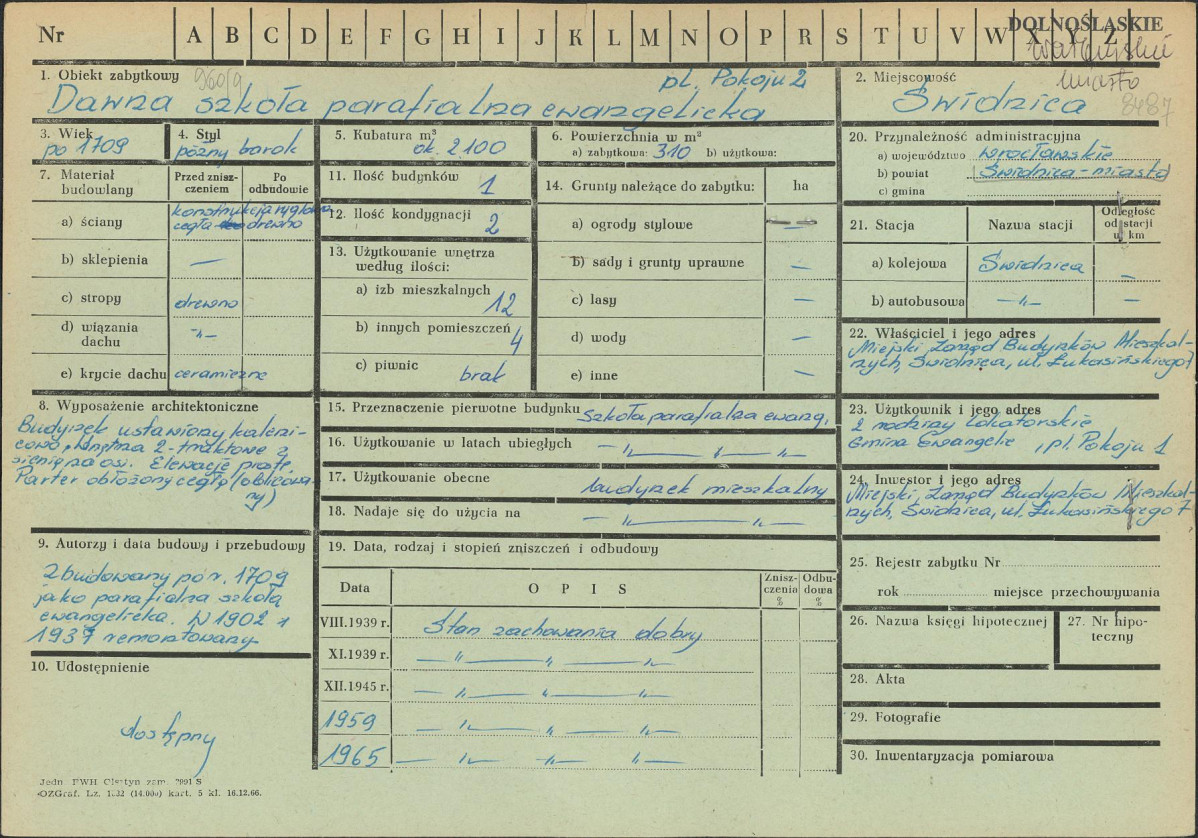 Nr A B C D E F G H I J K L M N O P R S T U V W X Y Z
DOLNOŚLĄSKIE
wałbrzyskie
miasto
1. Obiekt zabytkowy 960/9
pl. Pokoju 2
Dawna szkoła parafialna ewangelicka
2. Miejscowość
Świdnica
8487
3. Wiek
po 1709
4. Styl
późny barok
5. Kubatura m³
ok. 2100
6. Powierzchnia w m³
a) zabytkowa: 310 b) użytkowa:
7. Materiał budowlany
Przed znisz-
czeniem
Po
odbudowie
a) ściany
konstrukcja ryglowa
cegła drewno
b) sklepienia —
c) stropy drewno
d) wiązania
dachu -"-
e) krycie dachu ceramiczne
8. Wyposażenie architektoniczne
Budynek ustawiony kaleni-
cowo, wnętrza 2-traktowe z
sienią na osi. Elewacje proste,
Parter obłożony cegłą (oblicowa-
ny)
9. Autorzy i data budowy i przebudowy
Zbudowany po r. 1709
jako parafialna szkoła
ewangelicka. W 1902 i
1937 remontowany
10. Udostępnienie
dostępny
Jedn. PWH Olsztyn zam. 2991 S
OZGraf. Lz. 1532 (14.000) kart. 5 kl. 16.12.66.
11. Ilość budynków 1
12. Ilość kondygnacji
2
13. Użytkowanie wnętrza
według ilości:
a) izb mieszkalnych
12
b) innych pomieszczeń
4
c) piwnic brak
14. Grunty należące do zabytku: ha
a) ogrody stylowe —
b) sady i grunty uprawne —
c) lasy —
d) wody —
e) inne —
15. Przeznaczenie pierwotne budynku szkoła parafialna ewang.
16. Użytkowanie w latach ubiegłych — " — " — " —
17. Użytkowanie obecne budynek mieszkalny
18. Nadaje się do użycia na — " — " —
19. Data, rodzaj i stopień zniszczeń i odbudowy
Data
O P I S
Znisz-
czenia
%
Odbu-
dowa
%
VIII.1939 r. Stan zachowania dobry
XI.1939 r. — " — " — " —
XII.1945 r. — " — " — " —
1959 — " — " — " —
1965 — " — " — " —
20. Przynależność administracyjna
a) województwo wrocławskie
b) powiat Świdnica-miasto
c) gmina
21. Stacja
Nazwa stacji
Odległość
od stacji
w km
a) kolejowa Świdnica —
b) autobusowa -"- —
22. Właściciel i jego adres
Miejski Zarząd Budynków Mieszkal-
nych, Świdnica, ul. Łukasińskiego 7
23. Użytkownik i jego adres
2 rodziny lokatorskie
Gmina Ewangelic , pl. Pokoju 1
24. Inwestor i jego adres
Miejski Zarząd Budynków Mieszkal-
nych, Świdnica, ul. Łukasińskiego 7
25. Rejestr zabytku Nr
rok miejsce przechowywania
26. Nazwa księgi hipotecznej
27. Nr hipo-
teczny
28. Akta
29. Fotografie
30. Inwentaryzacja pomiarowa